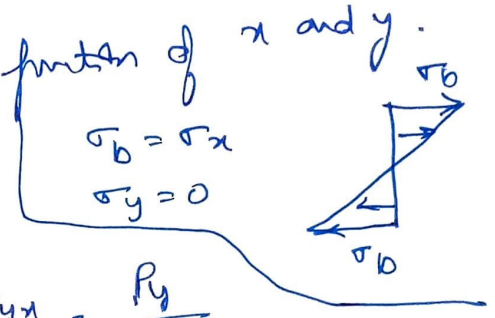 function of x and y.
σb
σb = σx
σy = 0
σb
yx = Py